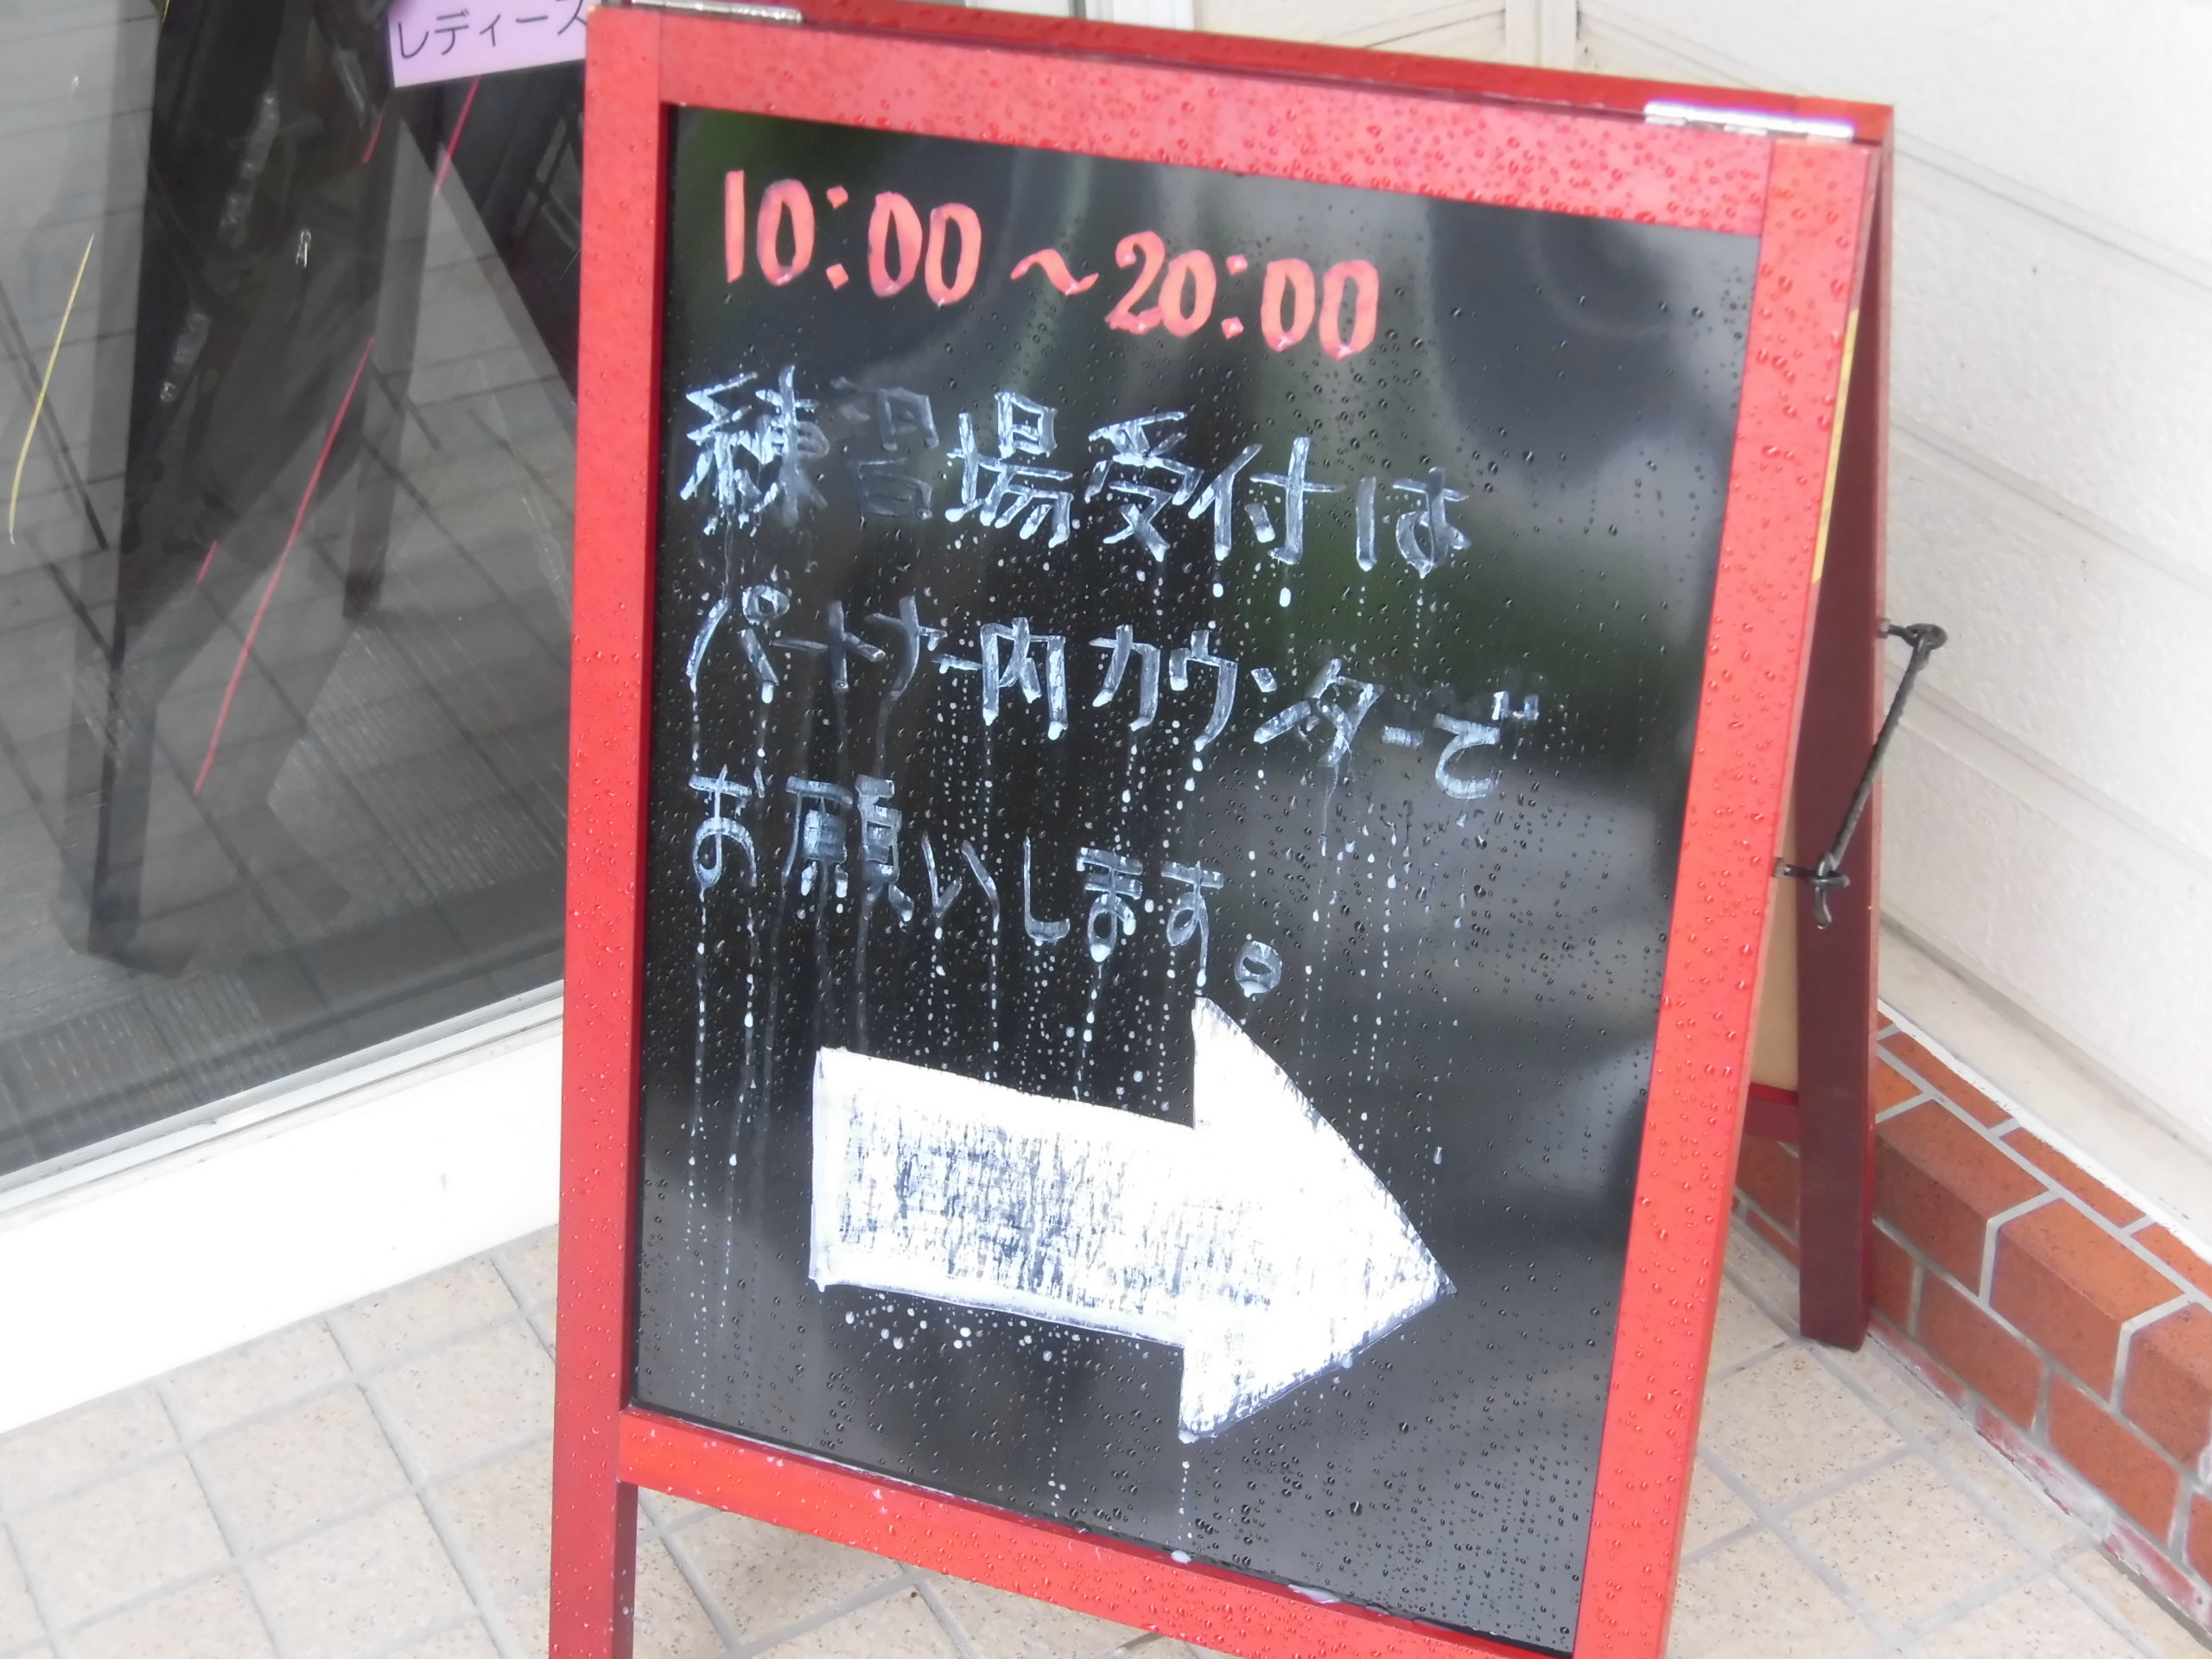 レディース
10:00～20:00
練習場受付は
パートナー内カウンターで
お願いします。